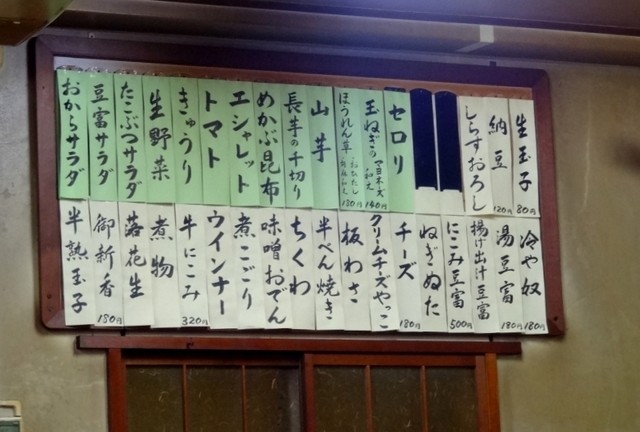 生玉子 80円
納豆 120円
しらすおろし
セロリ
玉ねぎのマヨネーズ和え 140円
ほうれん草 180円
山芋
長芋の千切り
めかぶ昆布
エシャレット
トマト
きゅうり
生野菜
たこぶつサラダ
豆富サラダ
おからサラダ
冷や奴 180円
湯豆富 180円
揚げ出汁豆富
にこみ豆富 500円
ねぎぬた
チーズ 180円
クリームチーズやっこ
板わさ
半ぺん焼き
ちくわ
味噌おでん
煮こごり
ウインナー
牛にこみ 320円
煮物
落花生
御新香 180円
半熟玉子